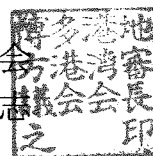 会志
博多港地
方港湾審
議会会長
之印